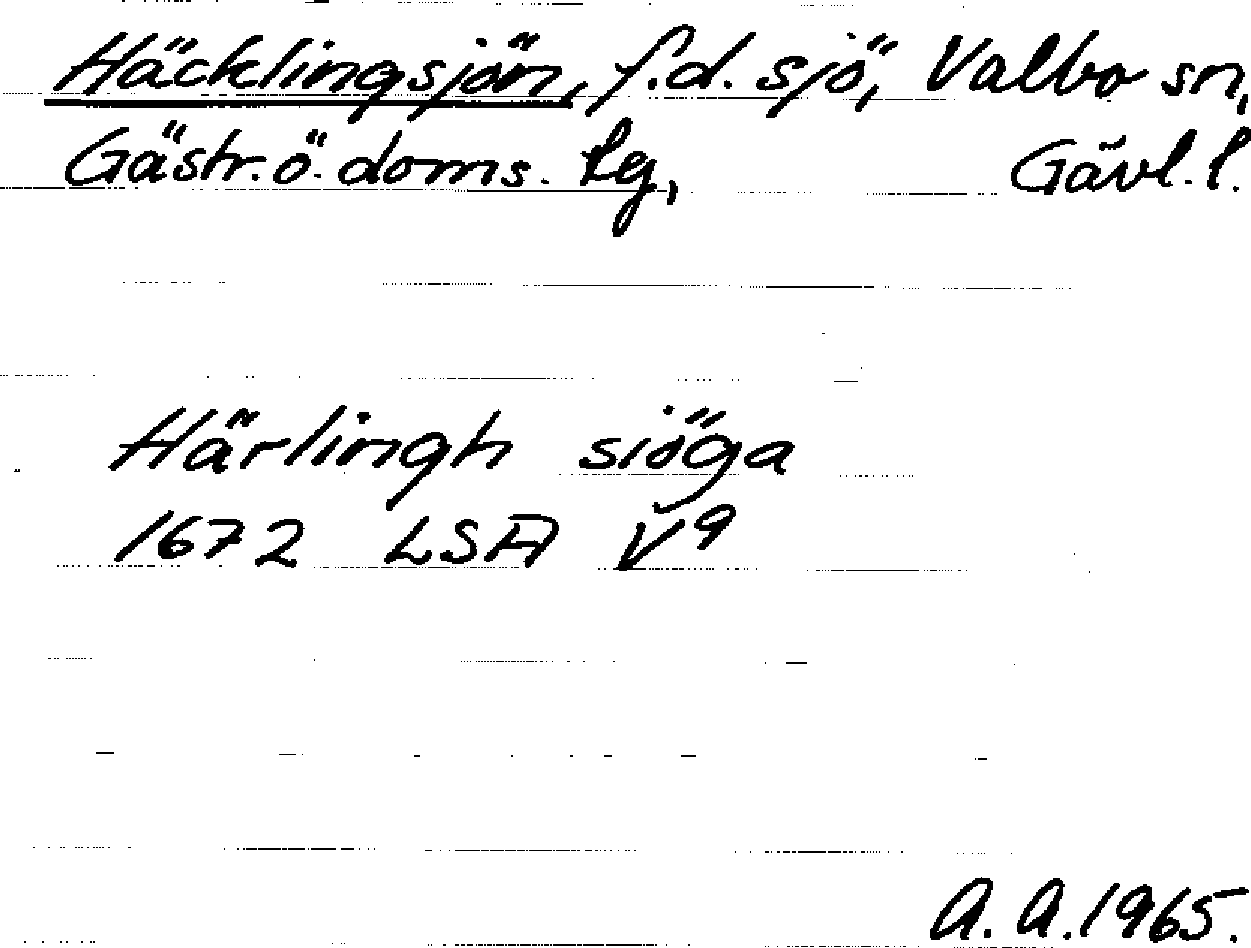 Häcklingsjön, f.d. sjö, Valbo sn,
Gästr. ö. doms. lg, Gävl. l.
Härlingh siöga
1672 LSA V9
A. A. 1965.